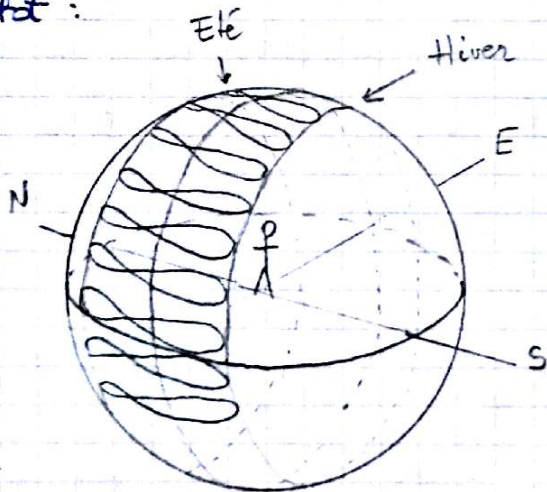 Eté
Hiver
E
N
S